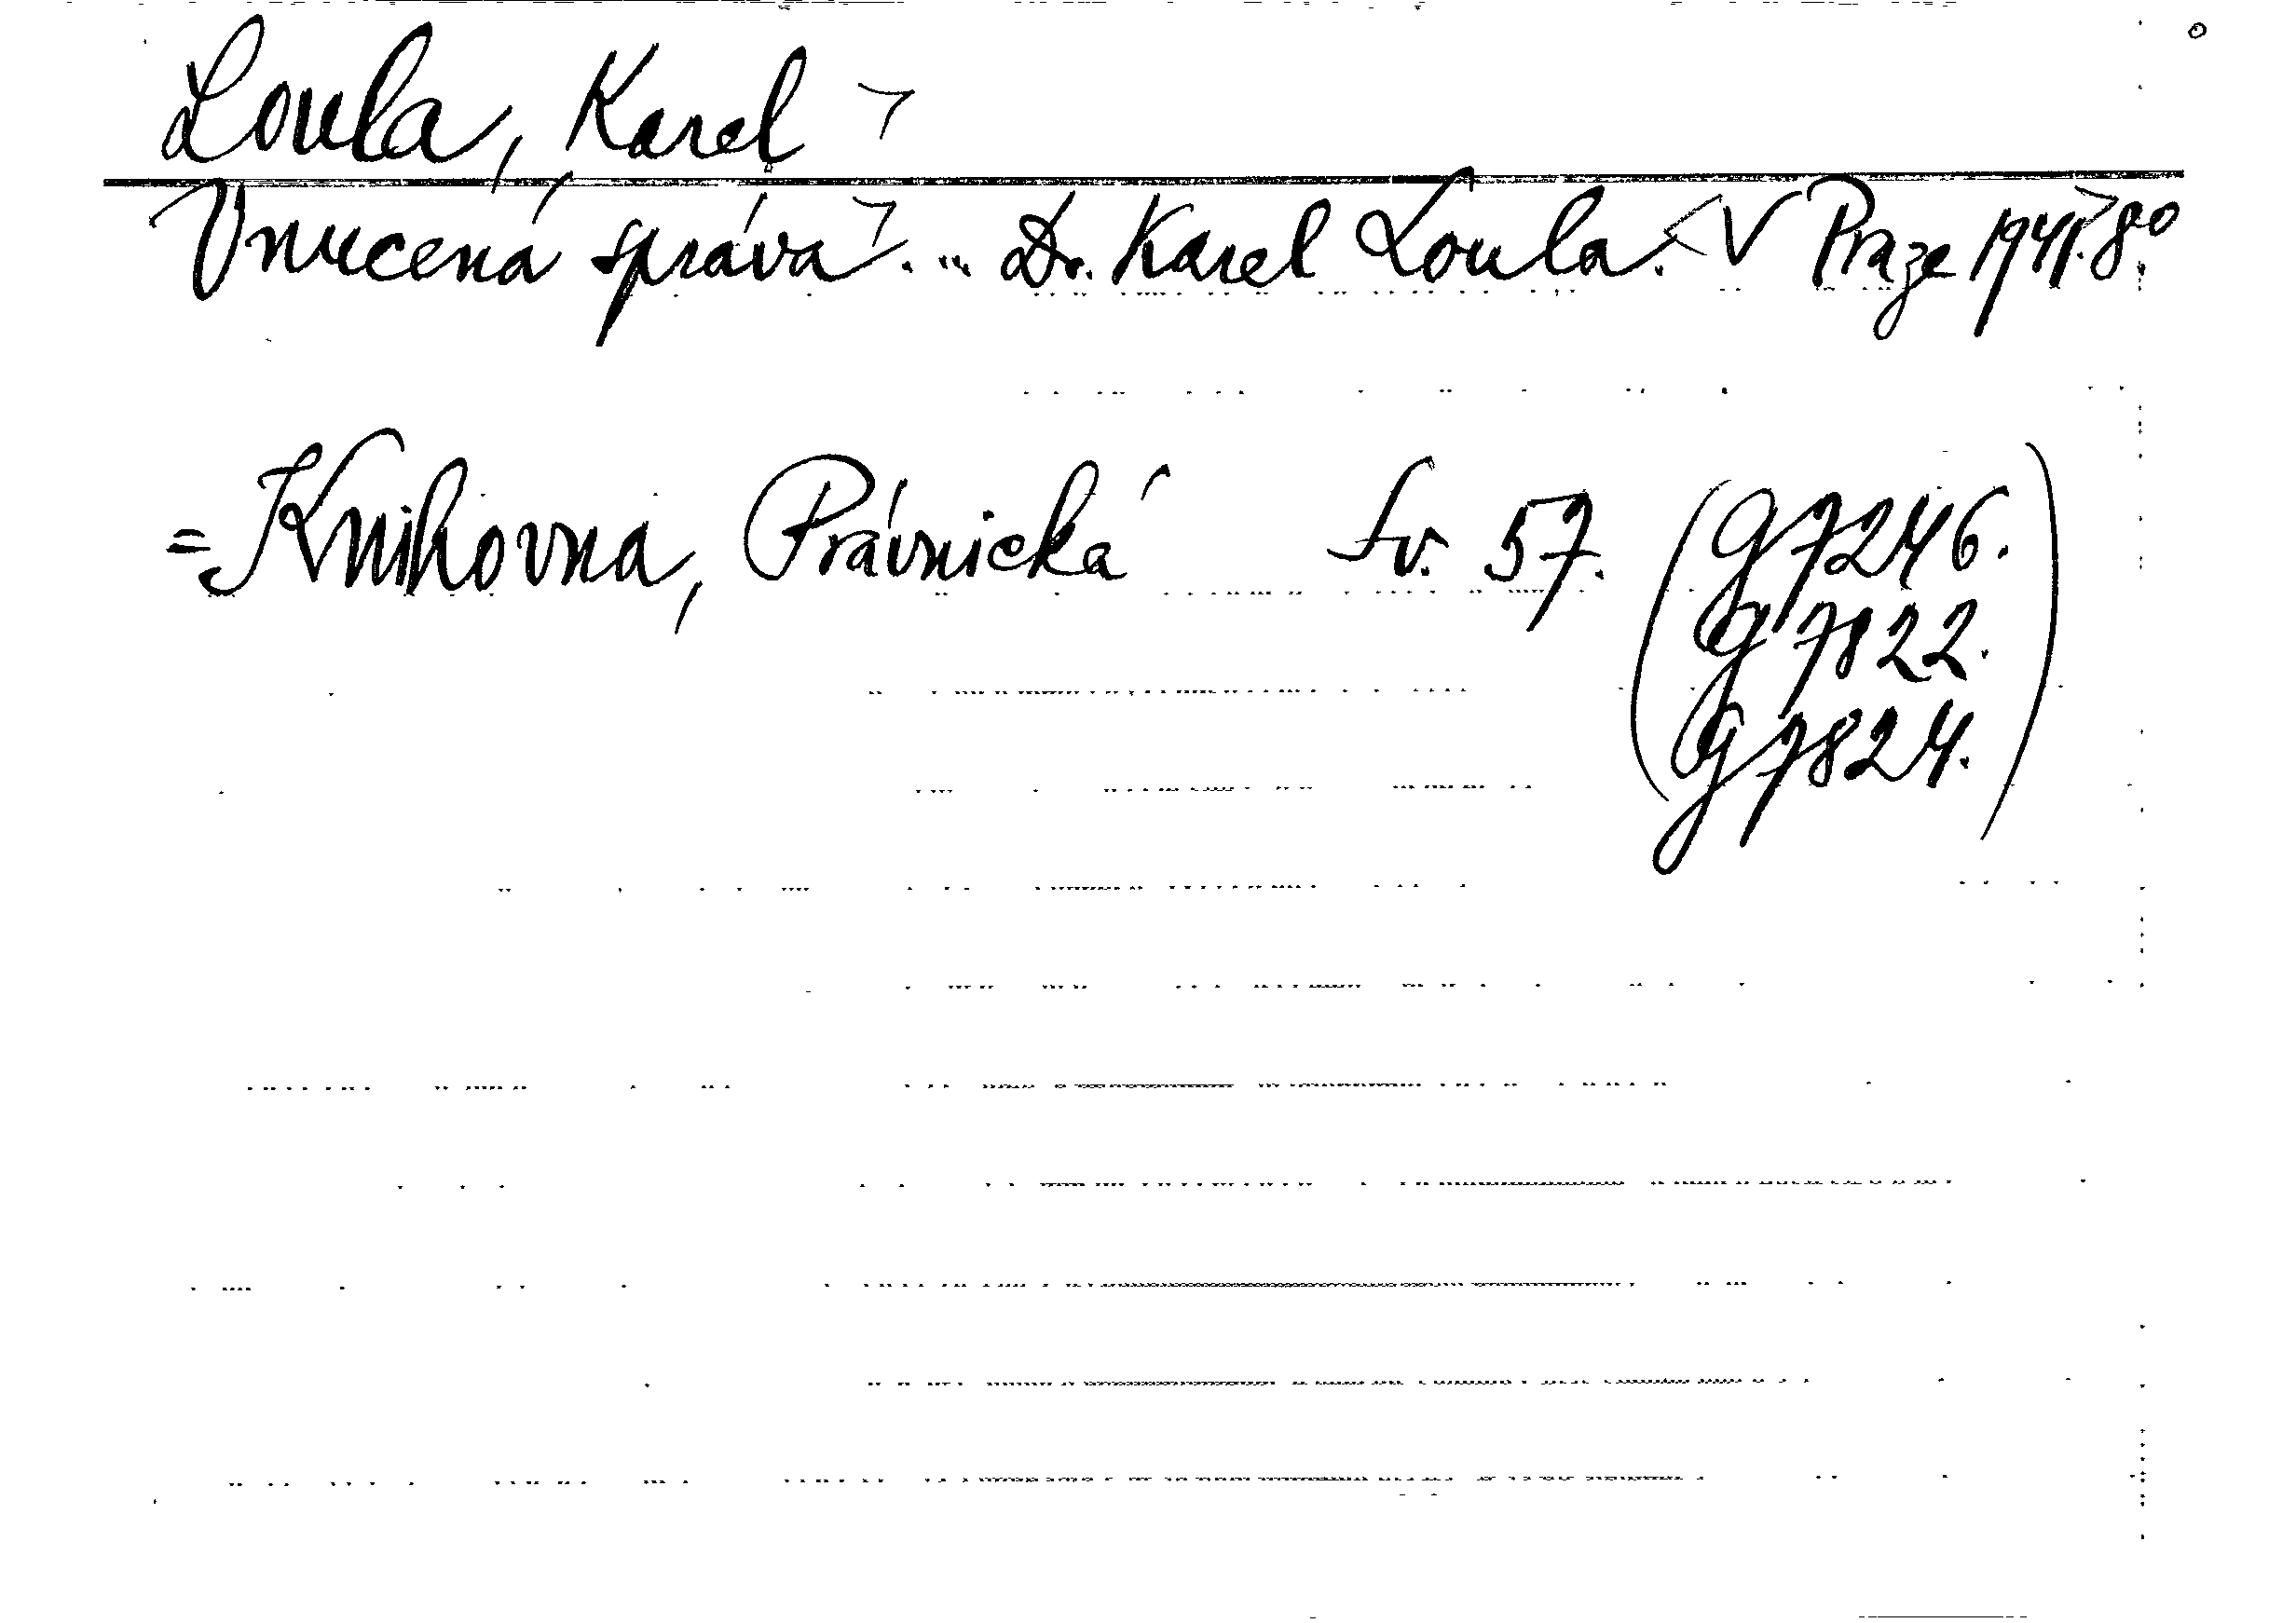 Loula, Karel
Vnucená správa. ... Dr. Karel Loula. V Praze 1941. 8°.
= Knihovna, Právnická Sv. 57. (G 7246.
G 7822.
G 7824.)